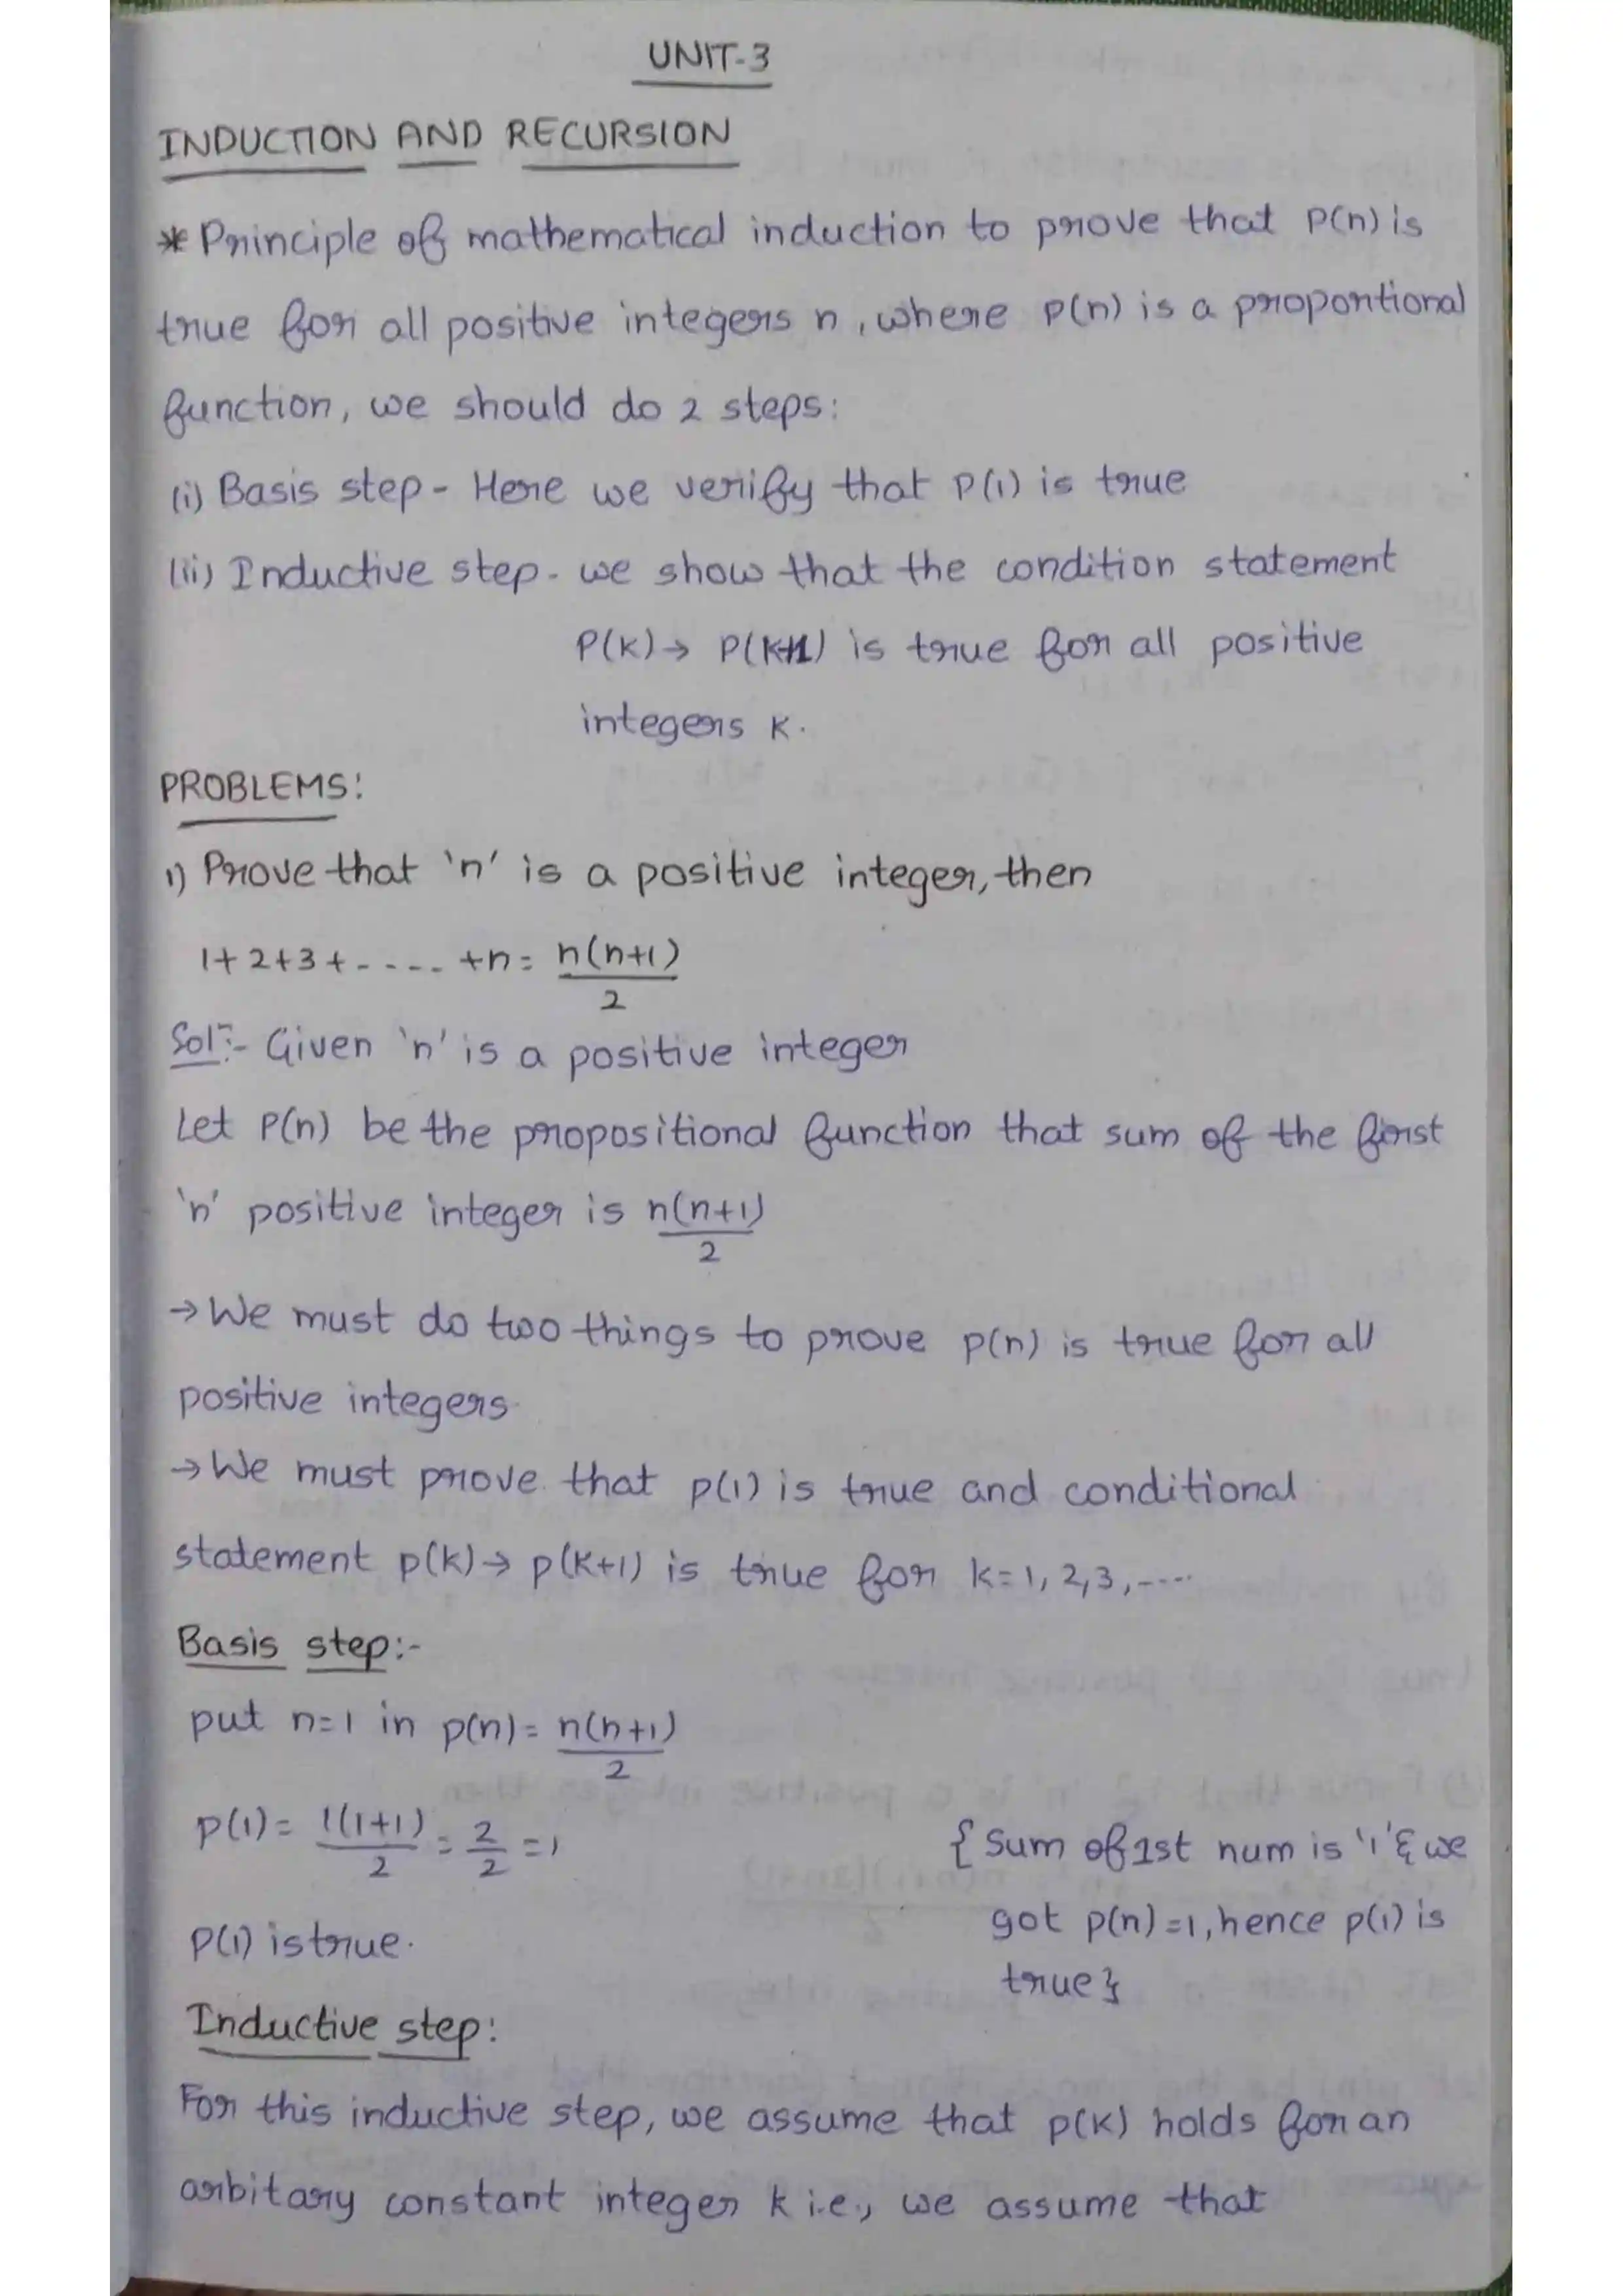 UNIT-3
INDUCTION AND RECURSION
* Principle of mathematical induction to prove that P(n) is
true for all positive integers n, where P(n) is a proportional
function, we should do 2 steps:
(i) Basis step - Here we verify that P(1) is true
(ii) Inductive step - we show that the condition statement
P(k) → P(k+1) is true for all positive
integers k.
PROBLEMS:
1) Prove that 'n' is a positive integer, then
1+2+3+----- +n = n(n+1)/2
Sol:- Given 'n' is a positive integer
Let P(n) be the propositional function that sum of the first
'n' positive integer is n(n+1)/2
→ We must do two things to prove p(n) is true for all
positive integers.
→ We must prove that p(1) is true and conditional
statement p(k) → p(k+1) is true for k=1, 2, 3, ----
Basis step:-
put n=1 in p(n) = n(n+1)/2
p(1) = 1(1+1)/2 = 2/2 = 1
{ Sum of 1st num is '1' & we
got p(n)=1, hence p(1) is
true }
P(1) is true.
Inductive step:
For this inductive step, we assume that p(k) holds for an
arbitary constant integer k i.e., we assume that